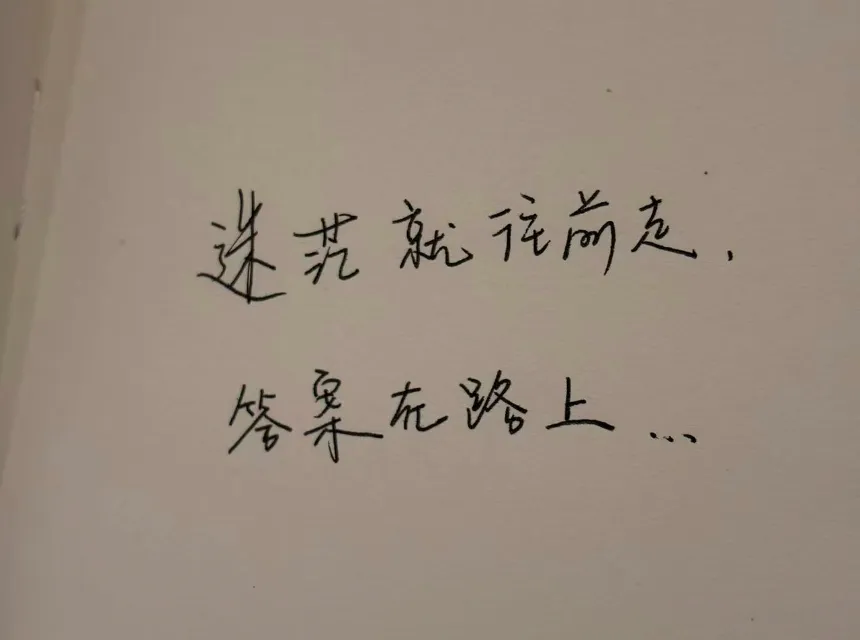 迷茫就往前走,
答案在路上...